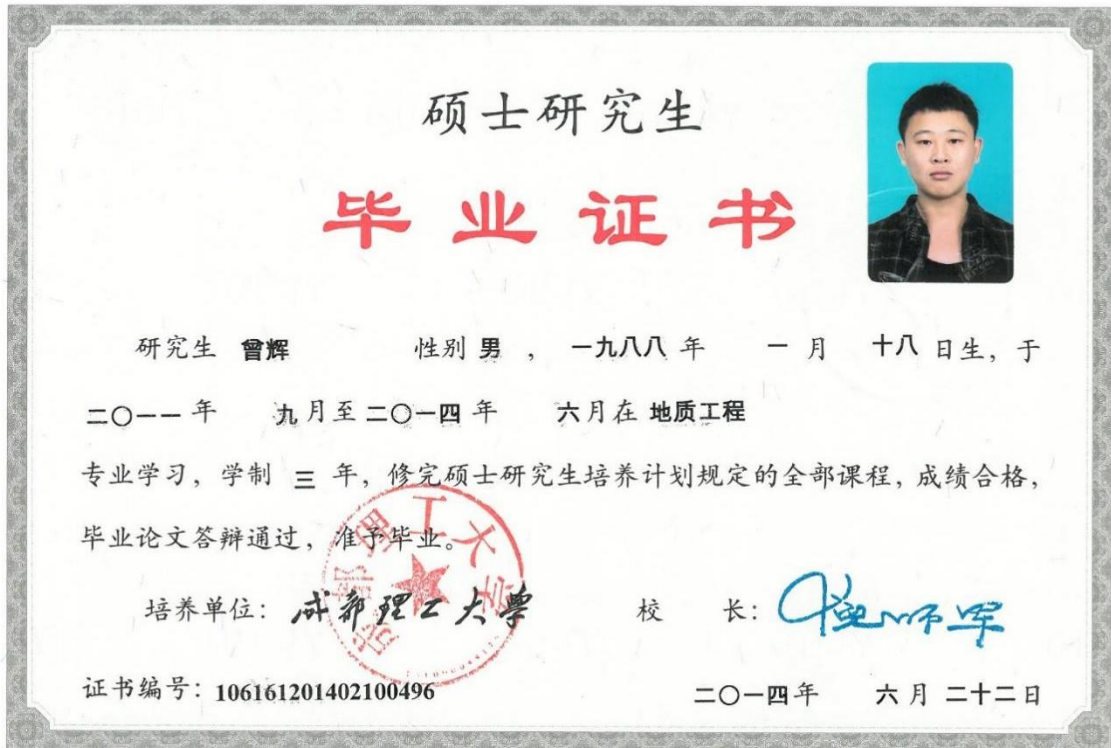 硕士研究生
毕业证书
研究生 曾辉 性别 男 ， 一九八八 年 一 月 十八 日生，于
二〇一一 年 九 月至 二〇一四 年 六 月在 地质工程
专业学习，学制 三 年，修完硕士研究生培养计划规定的全部课程，成绩合格，
毕业论文答辩通过，准予毕业。
成都理工大学
培养单位：成都理工大學 校 长：倪师军
证书编号：106161201402100496 二〇一四年 六月 二十二日